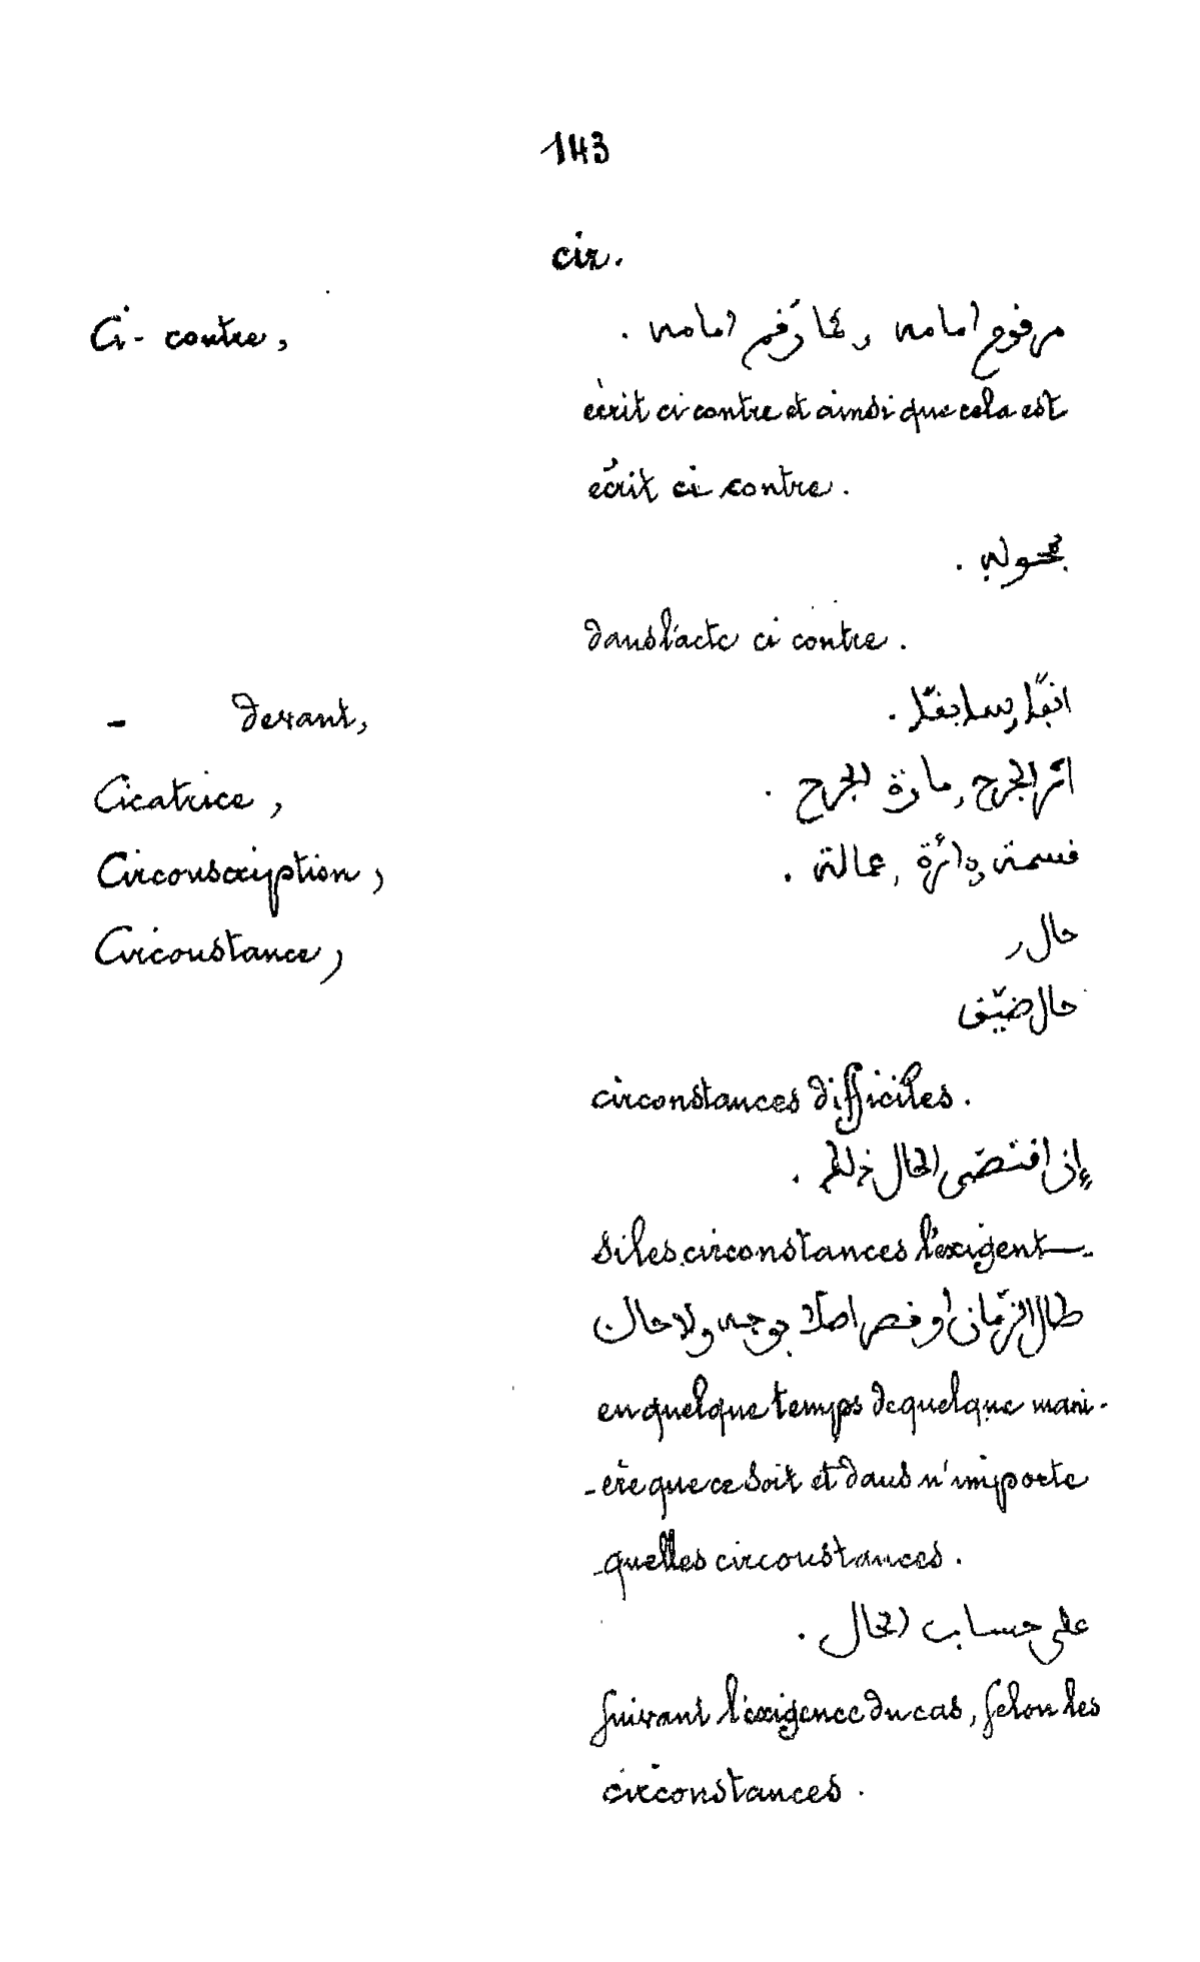 143
cir.
Ci-contre, مرقوم امامه, كما رُقم امامه.
écrit ci contre et ainsi que cela est
écrit ci contre.
بمحوله.
dans l'acte ci contre.
- devant, انفًا, سابقًا.
Cicatrice, اثر الجرح, مارة الجرح.
Circonscription, قسمة, دائرة, عمالة.
Circonstance, حال,
حال ضيّق
circonstances difficiles.
إن اقتضى الحال ذلك.
si les circonstances l'exigent
طال الزّمان أو قصر اصلًا بوجه ولا حال
en quelque temps de quelque mani-
-ère que ce soit et dans n'importe
quelles circonstances.
على حساب الحال.
suivant l'exigence du cas, selon les
circonstances.